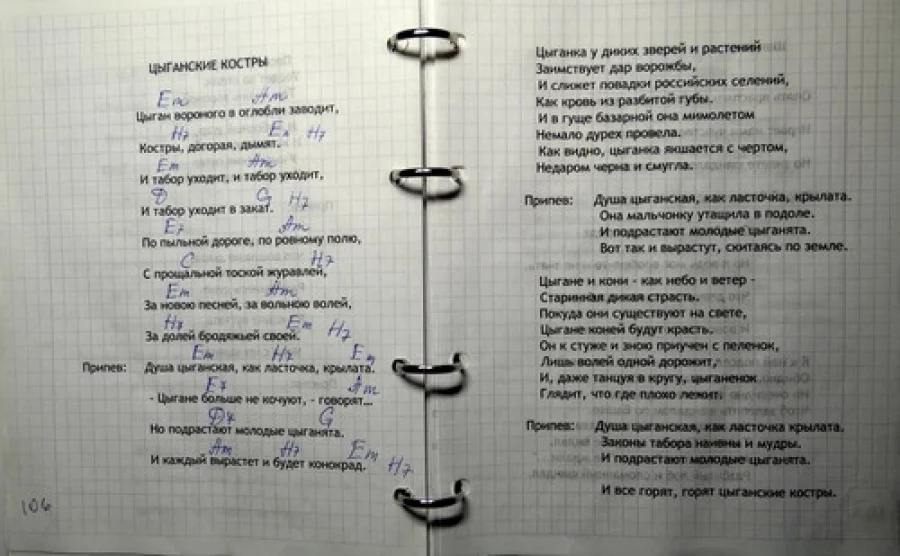 ЦЫГАНСКИЕ КОСТРЫ
Em Am
Цыган вороного в оглобли заводит,
H7 Em H7
Костры, догорая, дымят.
Em Am
И табор уходит, и табор уходит,
D G H7
И табор уходит в закат.
E7 Am
По пыльной дороге, по ровному полю,
C H7
С прощальной тоской журавлей,
Em Am
За новою песней, за вольною волей,
H7 Em H7
За долей бродяжьей своей.
Em H7 Em
Припев: Душа цыганская, как ласточка, крылата.
E7 Am
- Цыгане больше не кочуют, - говорят...
D7 G
Но подрастают молодые цыганята.
Am H7 Em H7
И каждый вырастет и будет конокрад.
106
Цыганка у диких зверей и растений
Заимствует дар ворожбы,
И слижет повадки российских селений,
Как кровь из разбитой губы.
И в гуще базарной она мимолетом
Немало дурех провела.
Как видно, цыганка якшается с чертом,
Недаром черна и смугла.
Припев: Душа цыганская, как ласточка, крылата.
Она мальчонку утащила в подоле.
И подрастают молодые цыганята.
Вот так и вырастут, скитаясь по земле.
Цыгане и кони - как небо и ветер -
Старинная дикая страсть.
Покуда они существуют на свете,
Цыгане коней будут красть.
Он к стуже и зною приучен с пеленок,
Лишь волей одной дорожит,
И, даже танцуя в кругу, цыганенок
Глядит, что где плохо лежит.
Припев: Душа цыганская, как ласточка крылата.
Законы табора наивны и мудры.
И подрастают молодые цыганята.
И все горят, горят цыганские костры.